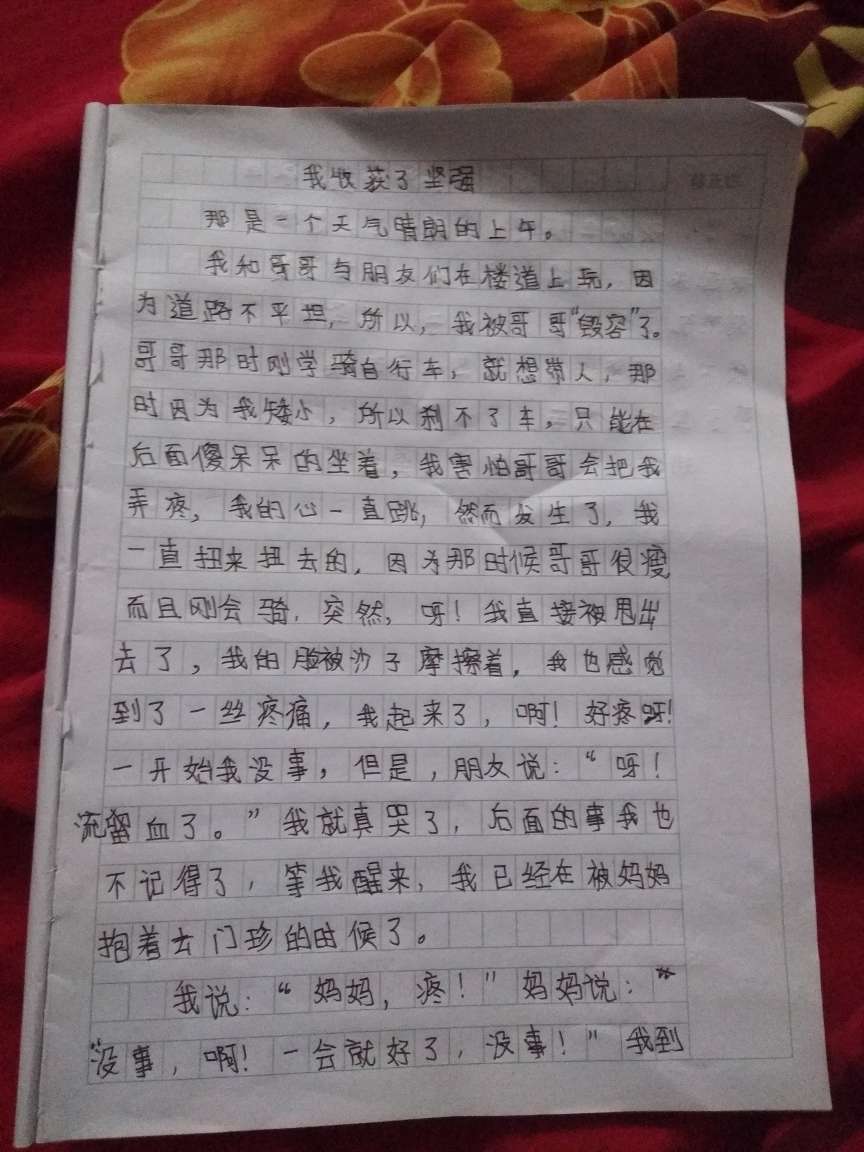 我收获了坚强
那是一个天气晴朗的上午。
我和哥哥与朋友们在楼道上玩，因
为道路不平坦，所以，我被哥哥“毁容”了。
哥哥那时刚学骑自行车，就想带人，那
时因为我矮小，所以刹不了车，只能在
后面傻呆呆的坐着，我害怕哥哥会把我
弄疼，我的心一直跳，然而发生了，我
一直扭来扭去的，因为那时候哥哥很瘦
而且刚会骑，突然，呀！我直接被甩出
去了，我的脸被沙子摩擦着，我也感觉
到了一丝疼痛，我起来了，啊！好疼呀！
一开始我没事，但是，朋友说：“呀！
流留血了。”我就真哭了，后面的事我也
不记得了，等我醒来，我已经在被妈妈
抱着去门珍的时候了。
我说：“妈妈，疼！”妈妈说：“
“没事，啊！一会就好了，没事！”我到